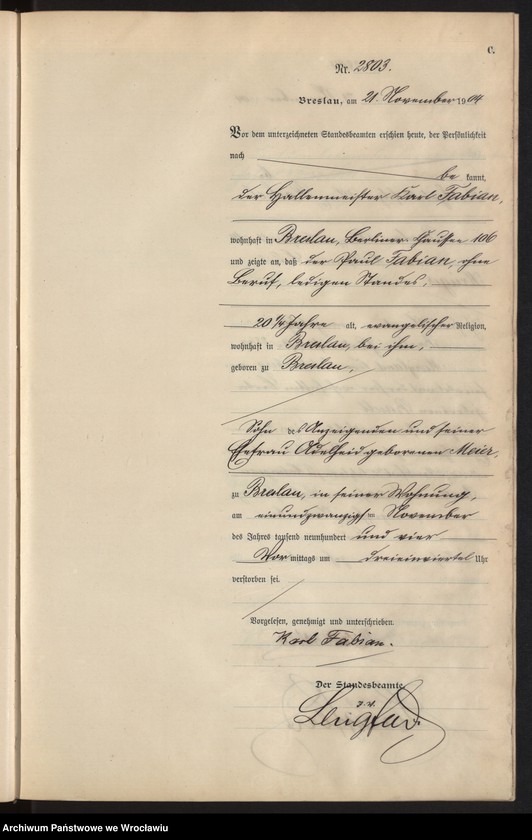 C.
Nr. 2803.
Breslau, am 21. November 1904
Vor dem unterzeichneten Standesbeamten erschien heute, der Persönlichkeit
nach
be kannt,
der Hallenmeister Karl Fabian,
wohnhaft in Breslau, Berliner Chaussee 106
und zeigte an, daß der Paul Fabian, ohne
Beruf, ledigen Standes,
20 1/4 Jahre alt, evangelischer Religion,
wohnhaft in Breslau, bei ihm,
geboren zu Breslau,
Sohn des Anzeigenden und seiner
Ehefrau Adelheid geborenen Meier,
zu Breslau, in seiner Wohnung,
am einundzwanzigsten November
des Jahres tausend neunhundert und vier
Vor mittags um dreieinviertel Uhr
verstorben sei.
Vorgelesen, genehmigt und unterschrieben.
Karl Fabian.
Der Standesbeamte
J. V.
Archiwum Państwowe we Wrocławiu